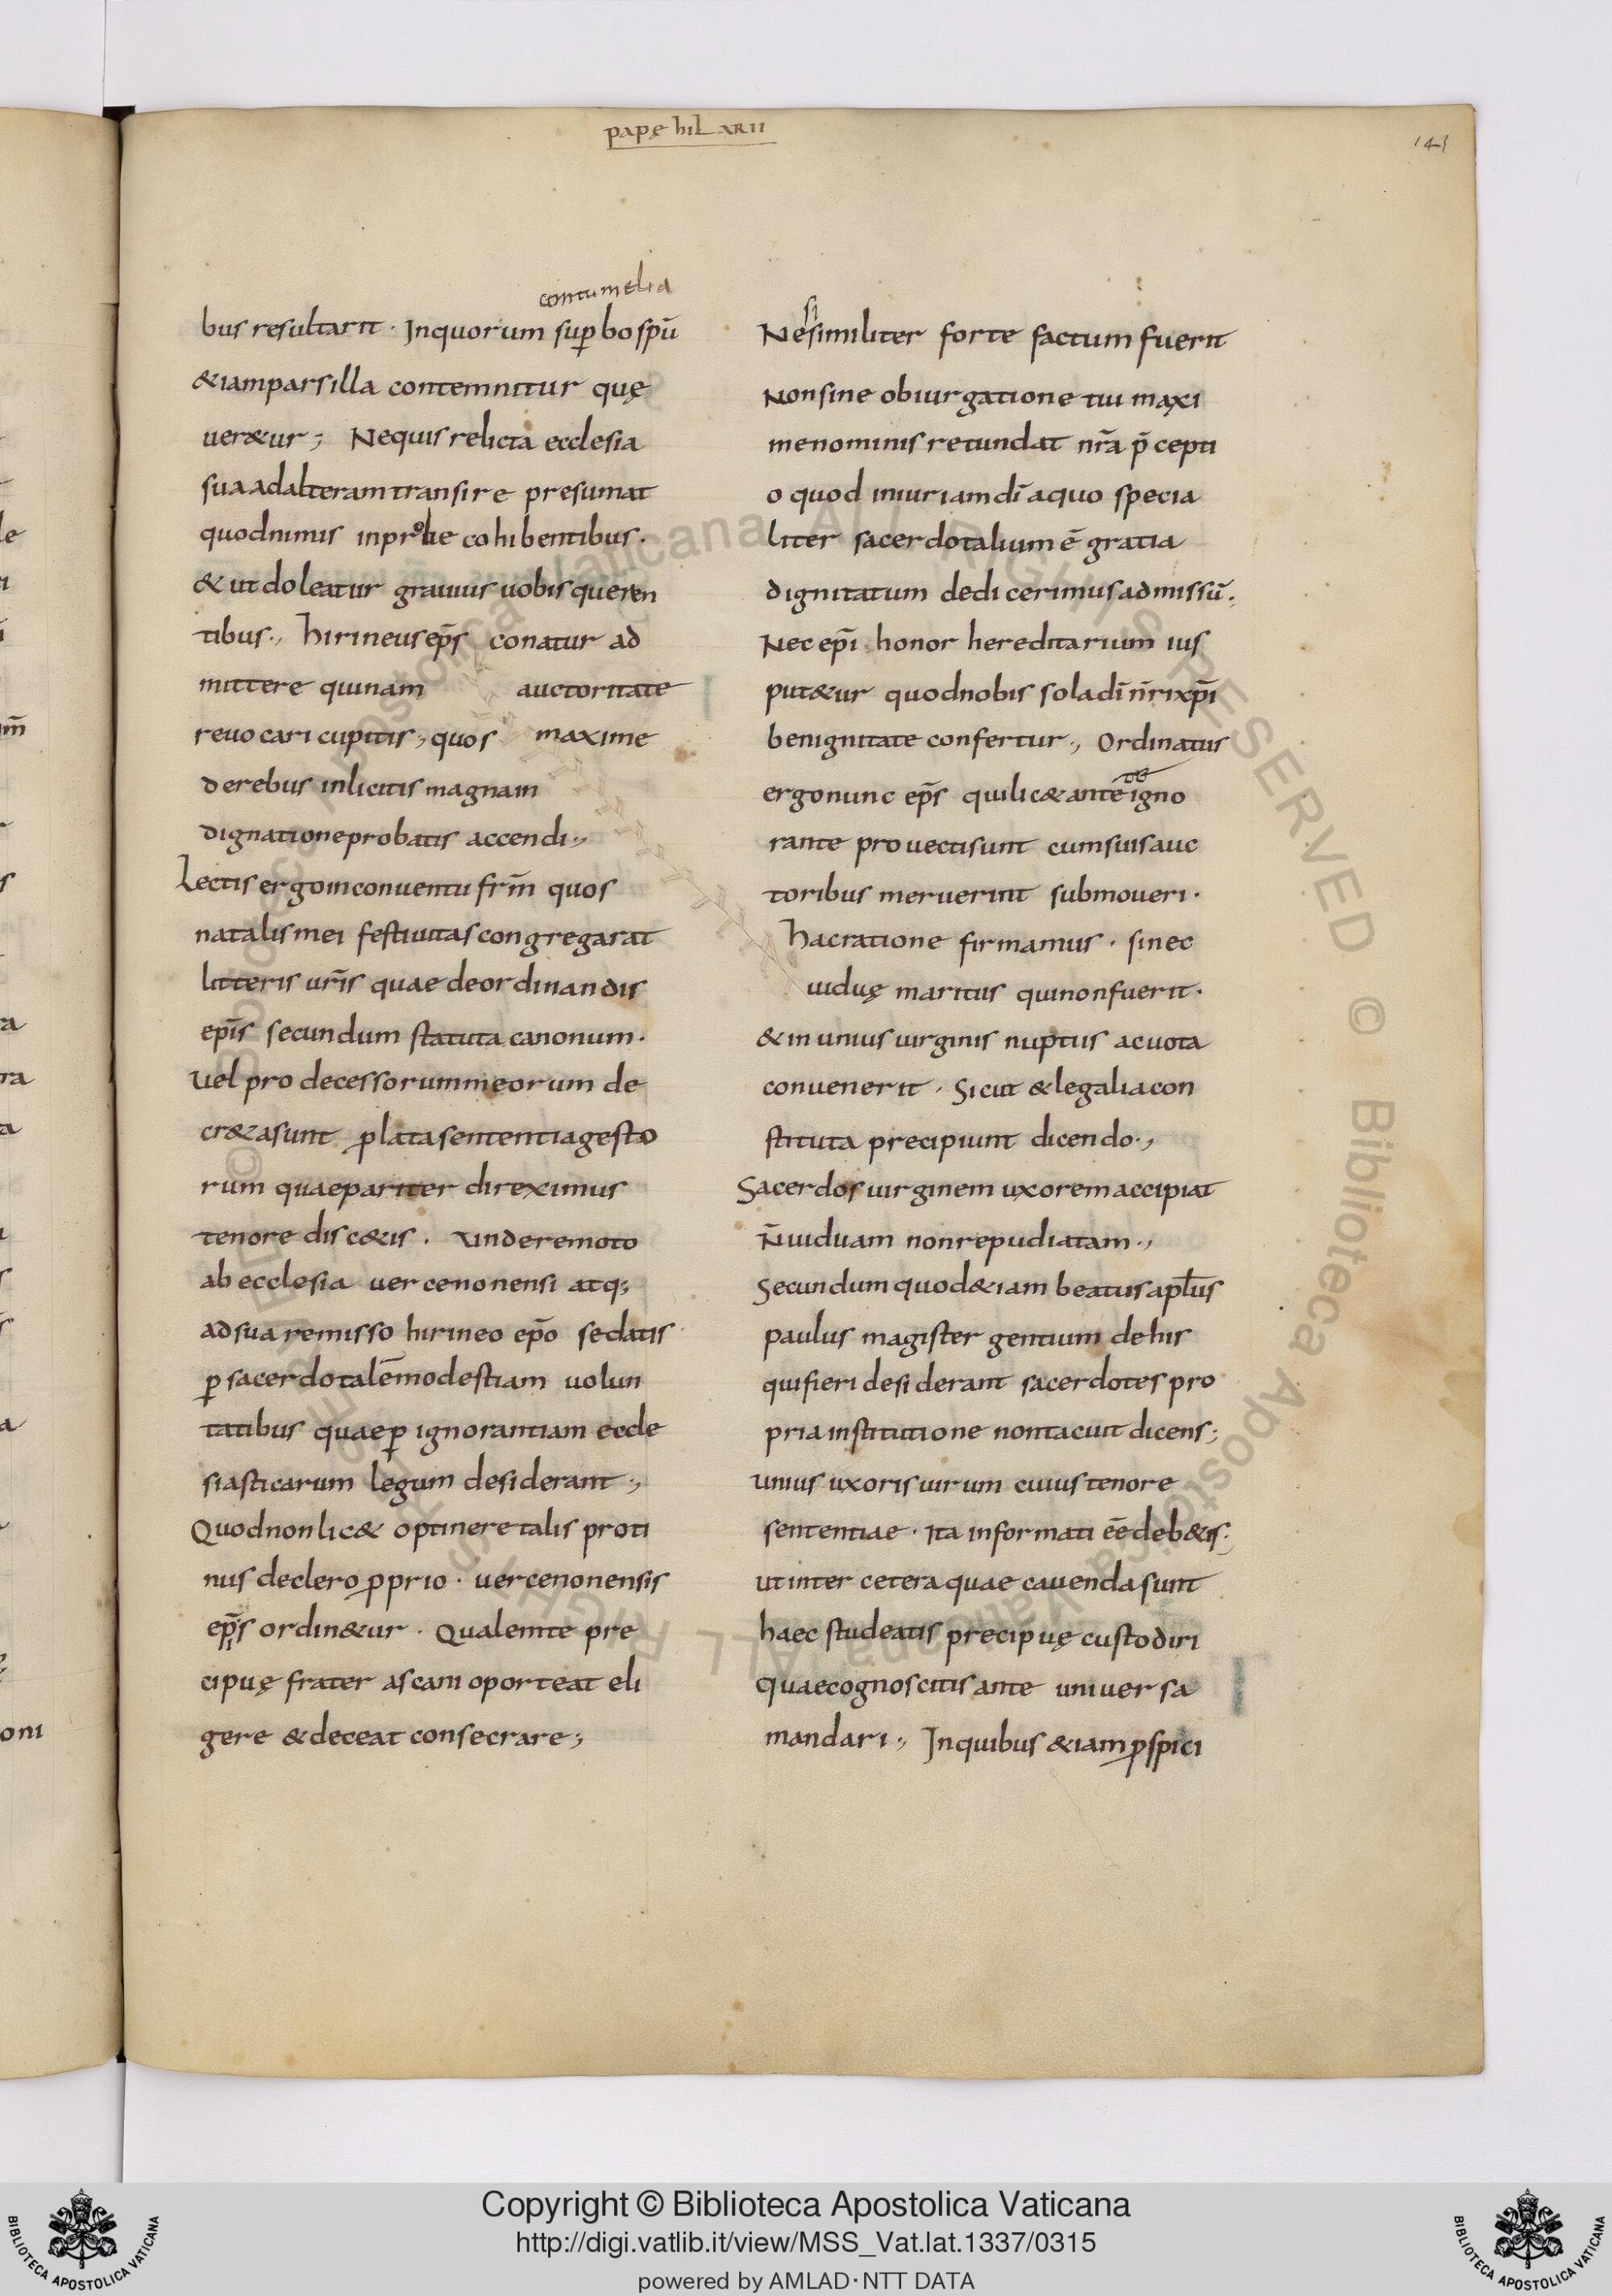 papę hilarii
143
contumelia
bus resultarit · Inquorum sup̱bo spū
&iamparsilla contemnitur quę
uer&ur ; Nequis relicta ecclesia
suaadalteram transire presumat
quodnimis inprobe cohibentibus ·
& ut doleatur grauius uobis queren
tibus ·, hirineus ep̄s conatur ad
mittere quinam auctoritate
reuocari cupitis ; quos maxime
derebus inlicitis magnam
dignationeprobatis accendi ·,
Lectis ergoinconuentu frm̄ quos
natalis mei festiuitas congregarat
litteris ur̄is quae deordinandis
ep̄is secundum statuta canonum ·
uel pro decessorummeorum de
cr&asunt p̱lata sententiagesto
rum quaepariter direximus
tenore disc&is · Unde remoto
ab ecclesia uercenonensi atq;
adsua remisso hirineo ep̄o sedatis
p̱ sacerdotalēmodestiam uolun
tatibus quaep̱ ignorantiam eccle
siasticarum legum desiderant ·,
Quodnonlic& optinere talis proti
nus declero p̱prio · uercenonensis
ep̄s ordin&ur · Qualemte pre
cipuę frater ascani oporteat eli
gere & deceat consecrare ;
si
Ne similiter forte factum fuerit
Nonsine obiurgatione tui maxi
menominis retundat nr̄a p̄cepti
o quod iniuriam dī aquo specia
liter sacerdotalium ē gratia
dignitatum dedicerimus admissū ·,
Nec ep̄i honor hereditarium ius
put&ur quodnobis sola dī nr̄i xp̄i
benignitate confertur ·, Ordinatus
ob
ergonunc ep̄s quilic&ante igno
rante prouectisunt cumsuis auc
toribus meruerint submoueri ·
hacratione firmamus · sinec
uiduę maritus quinonfuerit ·
& in unius uirginis nuptus acuota
conuenerit · Sicut & legaliacon
stituta precipiunt dicendo ·,
Sacerdos uirginem uxorem accipiat
N̄ uiduam nonrepudiatam ·,
Secundum quod&iam beatus apl̄us
paulus magister gentium dehis
quifieri desiderant sacerdotes pro
pria institutione nontacuit dicens ;
unius uxoris uirum cuius tenore
sententiae · ita informati eē deb&is ·,
ut inter cetera quae cauenda sunt
haec studeatis precipuę custodiri
quaecognoscitis ante uniuersa
mandari ·, Inquibus &iam p̱spici
Copyright © Biblioteca Apostolica Vaticana
http://digi.vatlib.it/view/MSS_Vat.lat.1337/0315
powered by AMLAD·NTT DATA